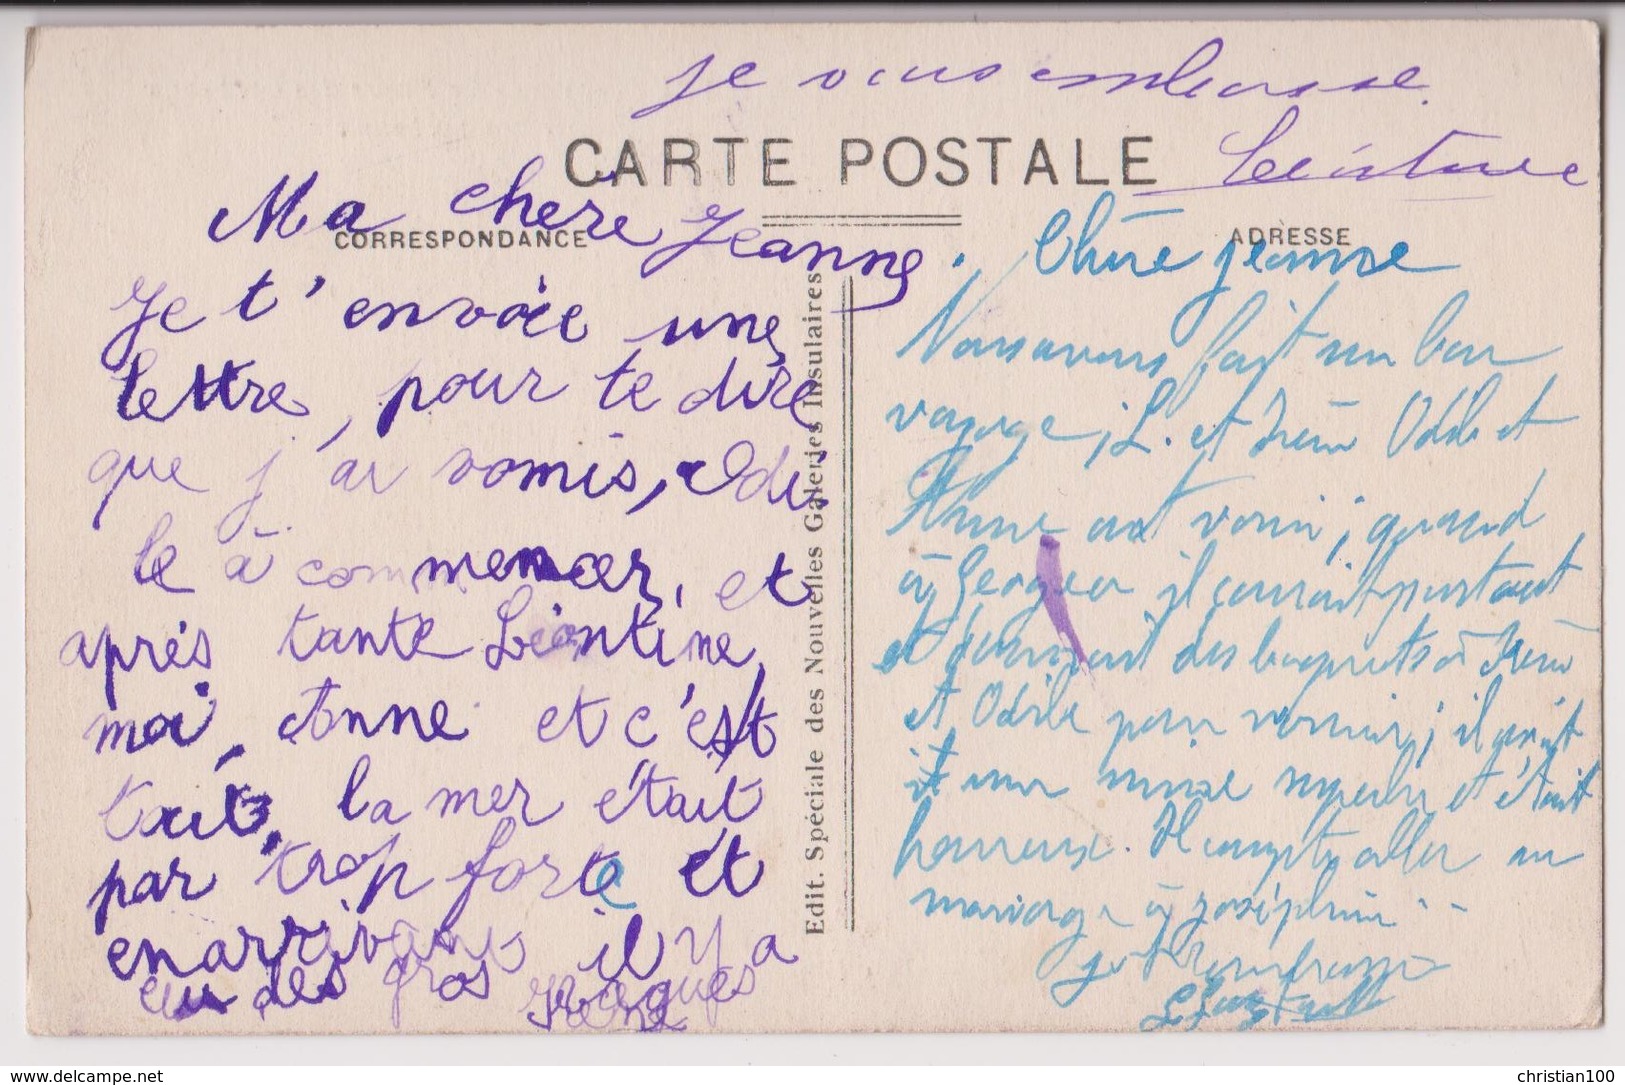 je vous embrasse.
CARTE POSTALE
CORRESPONDANCE
ADRESSE
Ma chère Jeanne.
Je t'envoie une
lettre, pour te dire
que j'ai vomis, Odi
le à commencer, et
après tante Léontine,
moi, Anne et c'est
tout, la mer était
par trop forte et
en arrivant il y a
eu des gros vagues
Irène
Edit. Spéciale des Nouvelles Galeries Insulaires
Chère Jeanne
Nous avons fait un bon
voyage, L. et Irène Odile et
Anne ont vomi; quand
à Georges il courait partout
et donnait des baquets à Irène
et Odile pour vomir; il avait
une mine superbe et était
heureux. Il compte aller au
mariage à Joséphine..
je t'embrasse
www.delcampe.net
christian100